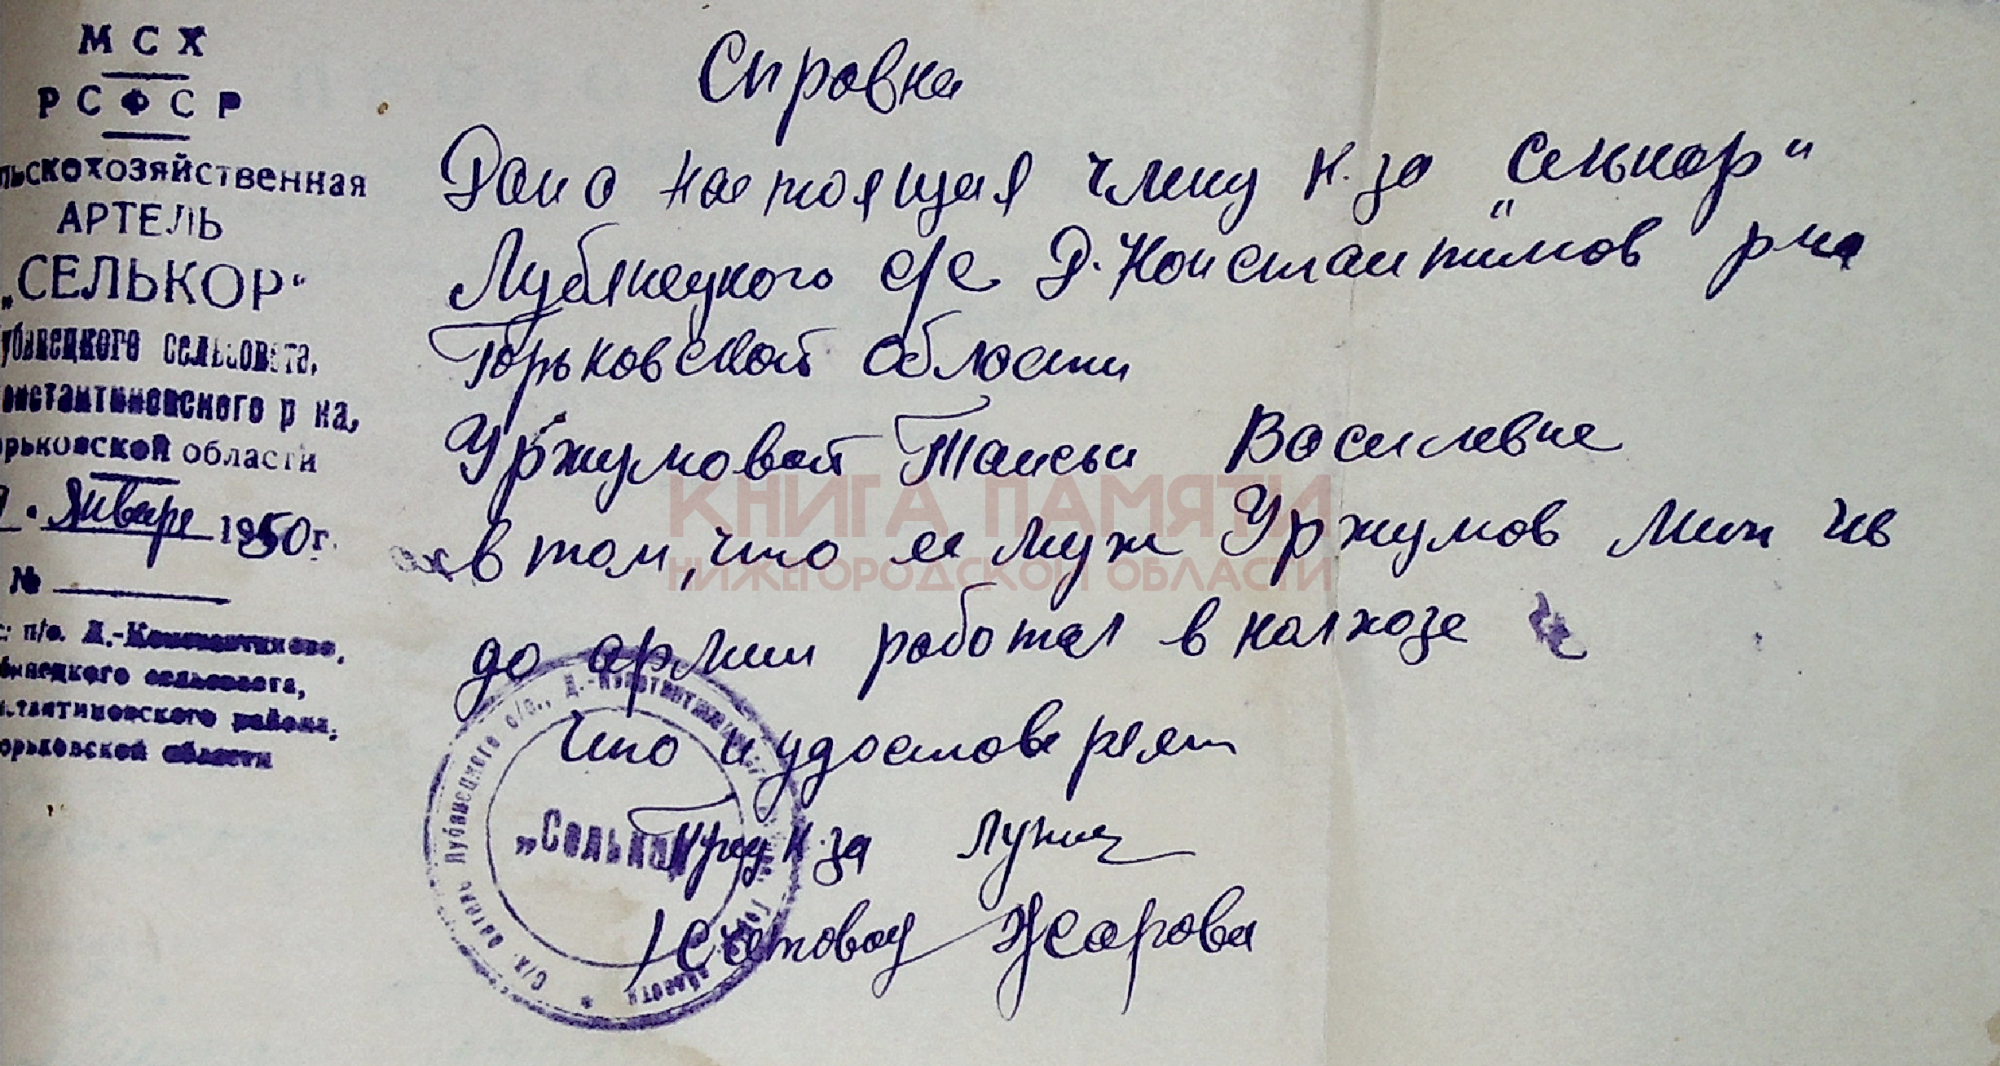 МСХ
РСФСР
льскохозяйственная
АРТЕЛЬ
„СЕЛЬКОР"
убанецкого сельсовета,
онстантиновского р на,
орьковской области
Январе 1950 г.
№
с: п/о. Д.-Константиново,
банецкого сельсовета,
нстантиновского района,
орьковской области
Справка
Дано настоящая члену к-за „Селькор"
Лубянецкого с/с Д.Константинов рна
Горьковской области
Уржумовой Таисьи Василевне
в том, что ее муж Уржумов
до армии работал в колхозе
Что и удостоверяет
Пред к-за
Счетовод Жарова
„Селькор"
С/х. артель Лубанецкого с/с., Д.-Константиновского
КНИГА ПАМЯТИ
НИЖЕГОРОДСКОЙ ОБЛАСТИ